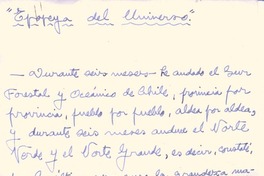 "Epopeya del Universo."
— Durante seis meses he andado el Sur
Forestal y Oceánico de Chile, provincia por
provincia, pueblo por pueblo, aldea por aldea,
y durante seis meses anduve el Norte
Verde y el Norte Grande, es decir, constaté,
la grandeza